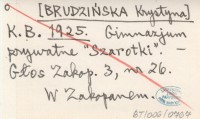 [BRUDZIŃSKA Krystyna]
K.B. 1925. Gimnazjum
prywatne "Szarotki". —
Głos Zakop. 3, nr 26.
W Zakopanem.